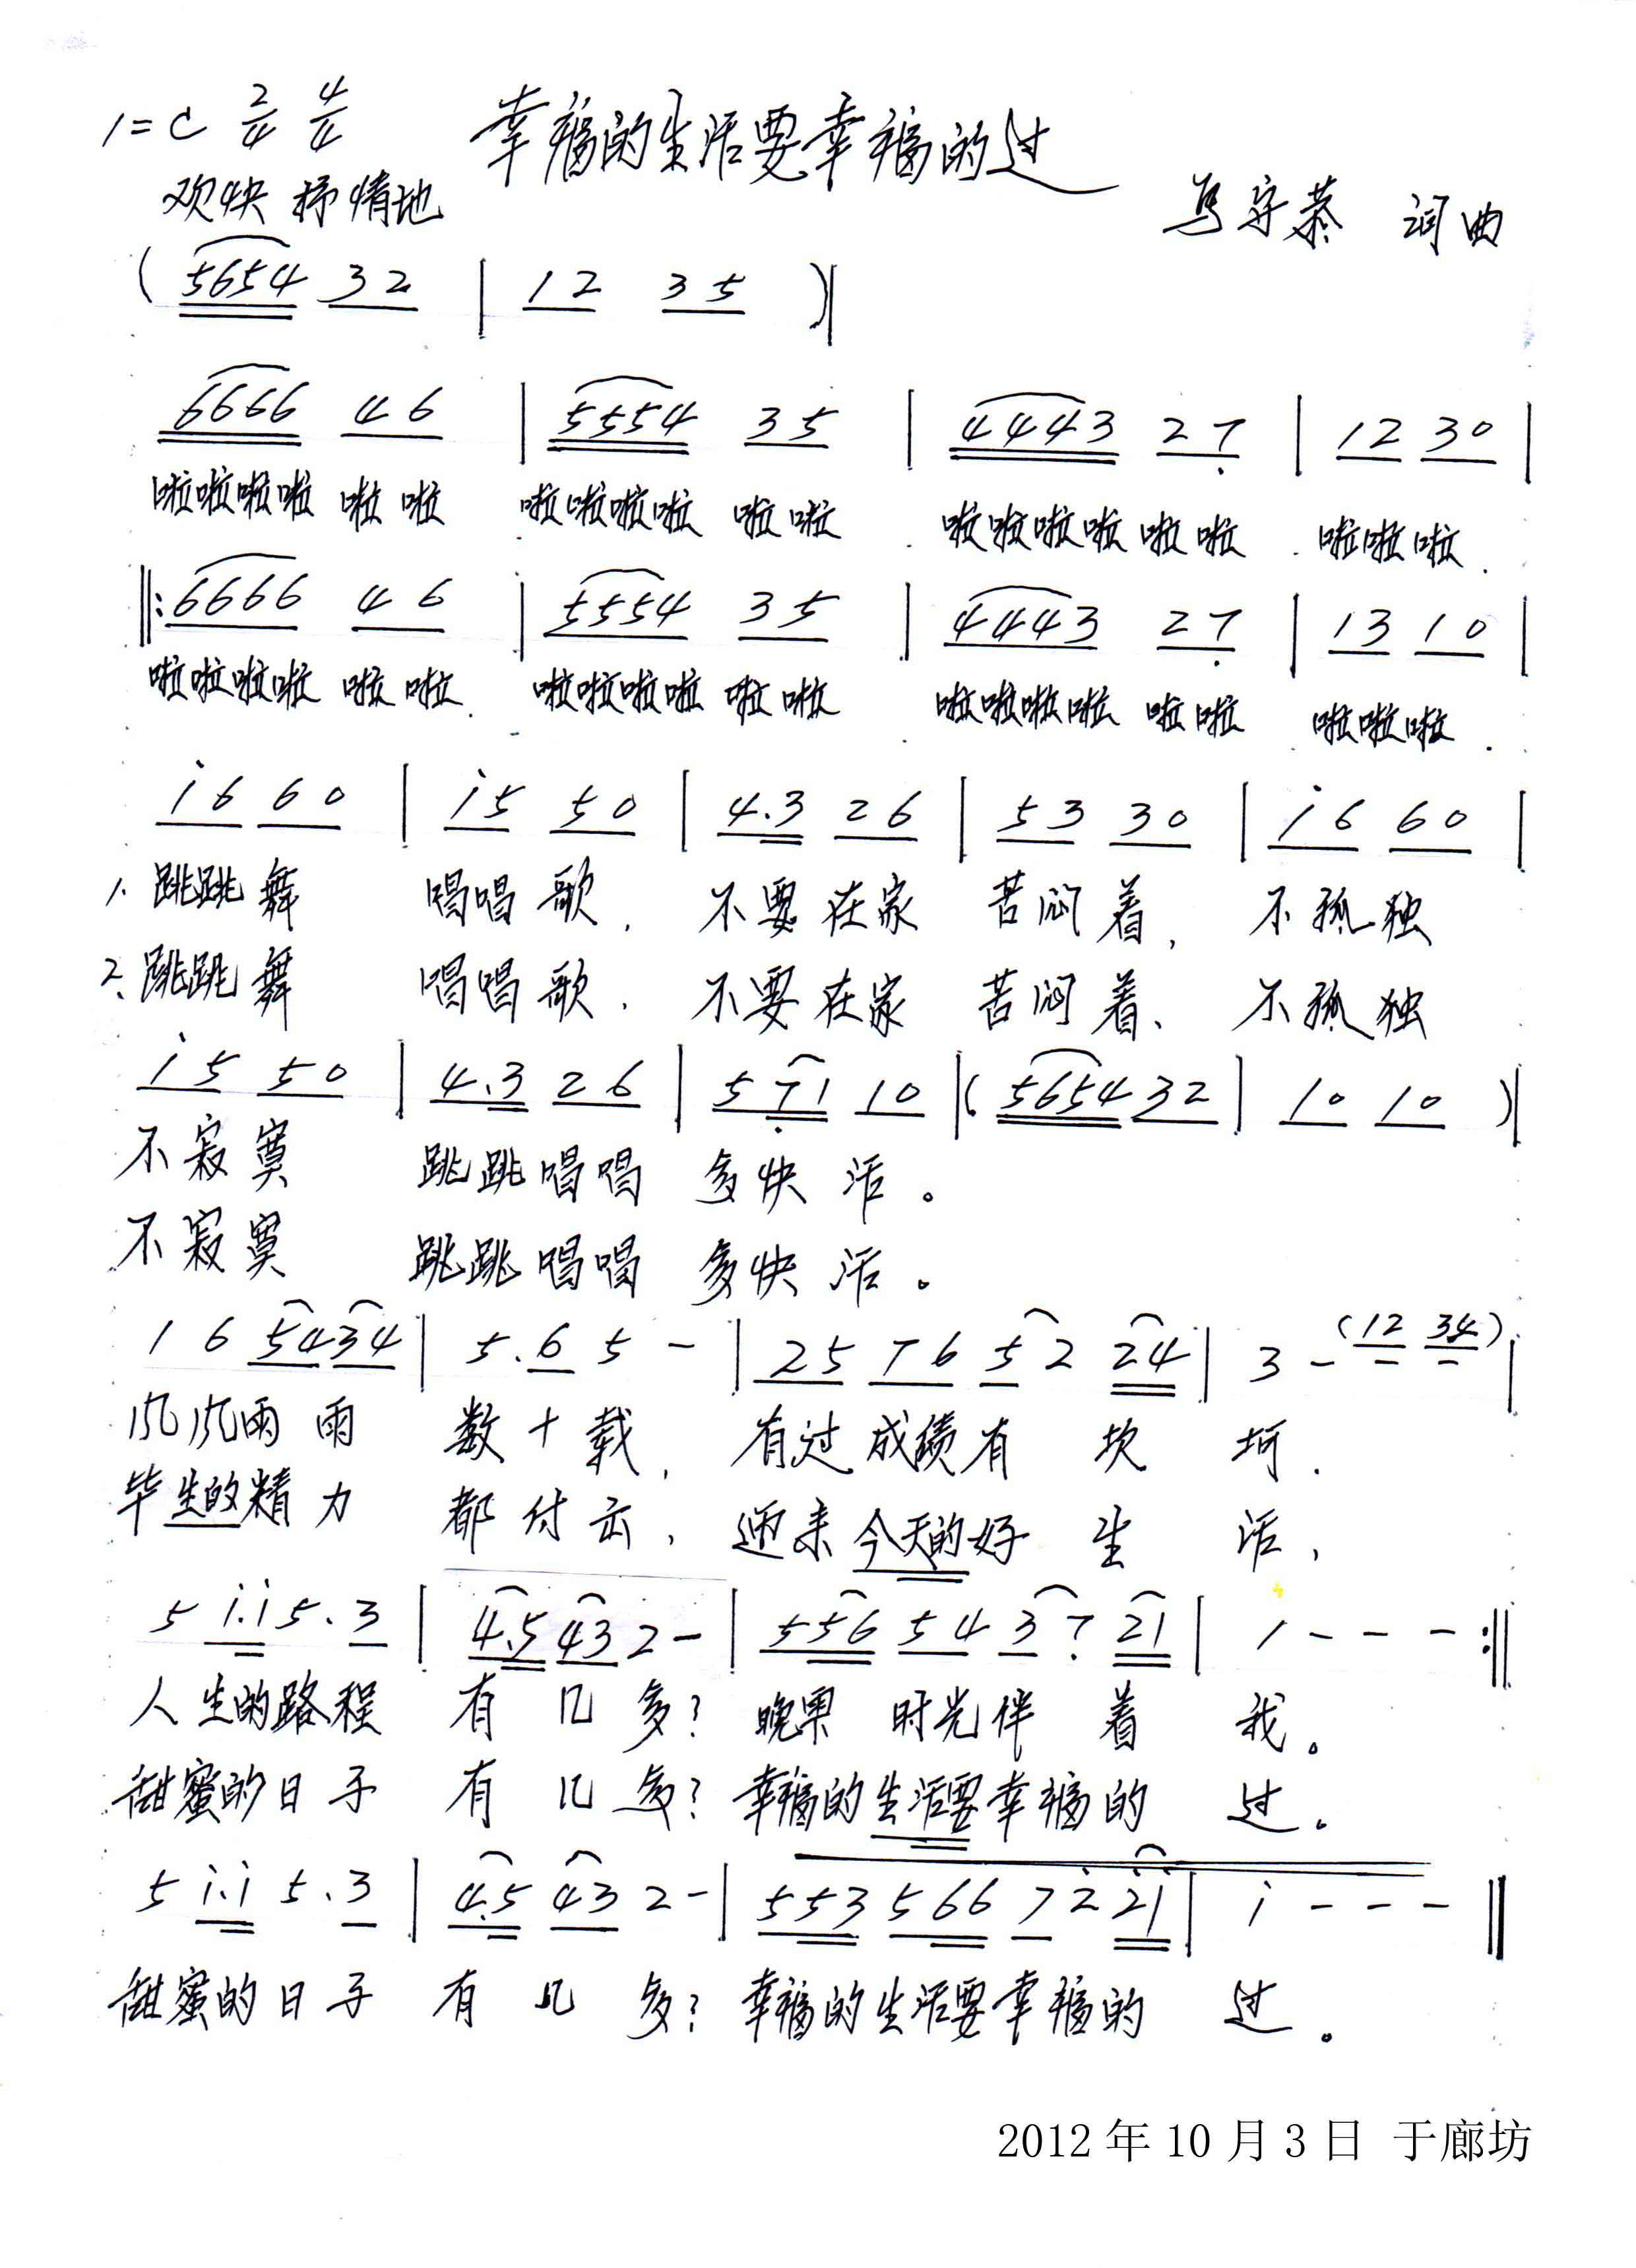 1=C 2/4 4/4 幸福的生活要幸福的过
欢快 抒情地
马守恭 词曲
( 5654 32 | 12 35 )|
6666 46 | 5554 35 | 4443 27̣ | 12 30 |
啦啦啦啦 啦啦 啦啦啦啦 啦啦 啦啦啦啦 啦啦 啦啦啦.
‖: 6666 46 | 5554 35 | 4443 27̣ | 13 10 |
啦啦啦啦 啦啦. 啦啦啦啦 啦啦 啦啦啦啦 啦啦 啦啦啦.
i6 60 | i5 50 | 4.3 26 | 53 30 | i6 60 |
1. 跳跳舞 唱唱歌, 不要在家 苦闷着, 不孤独
2. 跳跳舞 唱唱歌. 不要在家 苦闷着、 不孤独
i5 50 | 4.3 26 | 57̣1 10 |( 5654 32 | 10 10 )|
不寂寞 跳跳唱唱 多快活。
不寂寞 跳跳唱唱 多快活。
1 6 5434 | 5.6 5 - | 25 76 52 24 | 3 - (12 34) |
风风雨雨 数十载, 有过成绩有坎坷.
毕生的精力 都付出, 迎来今天的好生活,
5 i.i 5.3 | 4.5 43 2 - | 556 54 37̣ 21 | 1 - - - :‖
人生的路程 有几多? 晚果时光伴着我。
甜蜜的日子 有几多? 幸福的生活要幸福的过。
5 i.i 5.3 | 4.5 43 2 - | 553 566 7 2̇ 2̇i | i - - - ‖
甜蜜的日子 有几多? 幸福的生活要幸福的过。
2012年10月3日 于廊坊